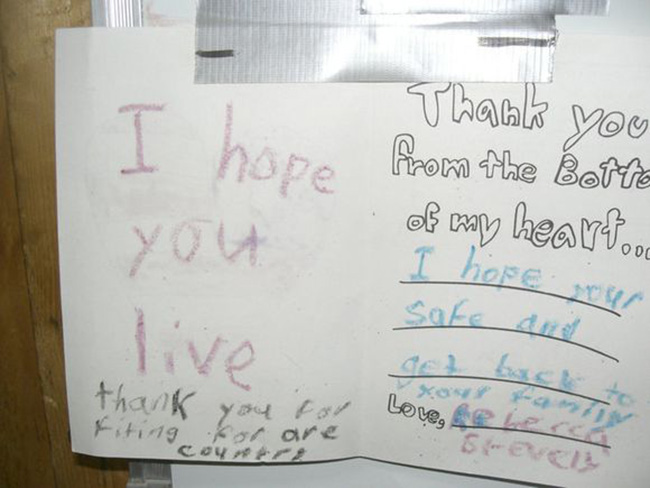 I hope
you
live
thank you for
fiting for are
countre
Thank you
from the Botto
of my heart...
I hope your
safe and
get back to
your family
Love, Reberca